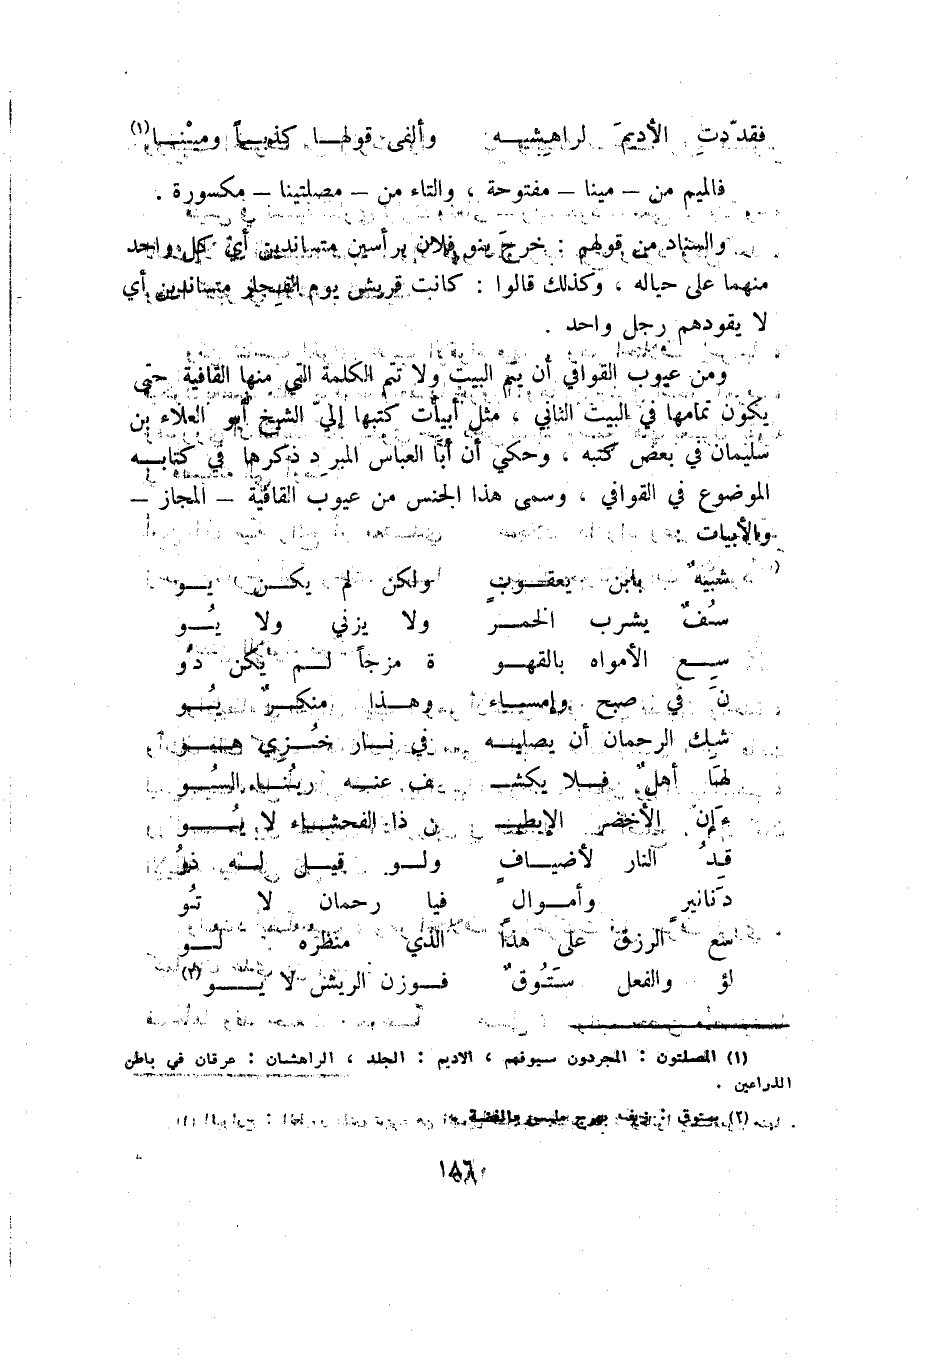 فقدّدتِ الأديمَ لراهشيه وألفى قولها كذباً وميْنا (١)
فالميم من – مينا – مفتوحة ، والتاء من – مصلتينا – مكسورة .
والسناد من قولهم : خرجَ بنو فلان برأسين متساندين أي كل واحد
منهما على حياله ، وكذلك قالوا : كانت قريش يوم الفجار متساندين أي
لا يقودهم رجل واحد .
ومن عيوب القوافي أن يتم البيت ولا تتم الكلمة التي منها القافية حتى
يكون تمامها في البيت الثاني ، مثل أبيات كتبها إليّ الشيخ أبو العلاء بن
سُليمان في بعض كتبه ، وحكي أن أبا العباس المبرد ذكرها في كتابه
الموضوع في القوافي ، وسمى هذا الجنس من عيوب القافية – المجاز –
والأبيات
شبيهٌ بابن يعقوبٍ ولكن لم يكن يو
سُفٌ يشرب الخمر ولا يزني ولا يُو
سِع الأمواه بالقهو ة مزجاً لم يكن دُو
نَ في صبح وإمساء وهذا منكرٌ يُو
شك الرحمان أن يصليه في نار خُزي هو
لها أهلٌ فلا يكشـ ف عنه ربُنا السُو
ءَإن الأخضر الإبطيـ ن ذا الفحشاء لا يُو
قدُ النار لأضيافٍ ولو قيل له ذُو
دَنانير وأموالٍ فيا رحمان لا تُو
سع الرزق على هذا الذي منظرُه لو
لؤ والفعل سَتُوقٌ فوزن الريش لا يو (٢)
(١) المصلتون : المجردون سيوفهم ، الاديم : الجلد ، الراهشان : عرقان في باطن
الذراعين .
(٢) ستوق : زيف بهرج ملبس بالفضة .
١٨٦